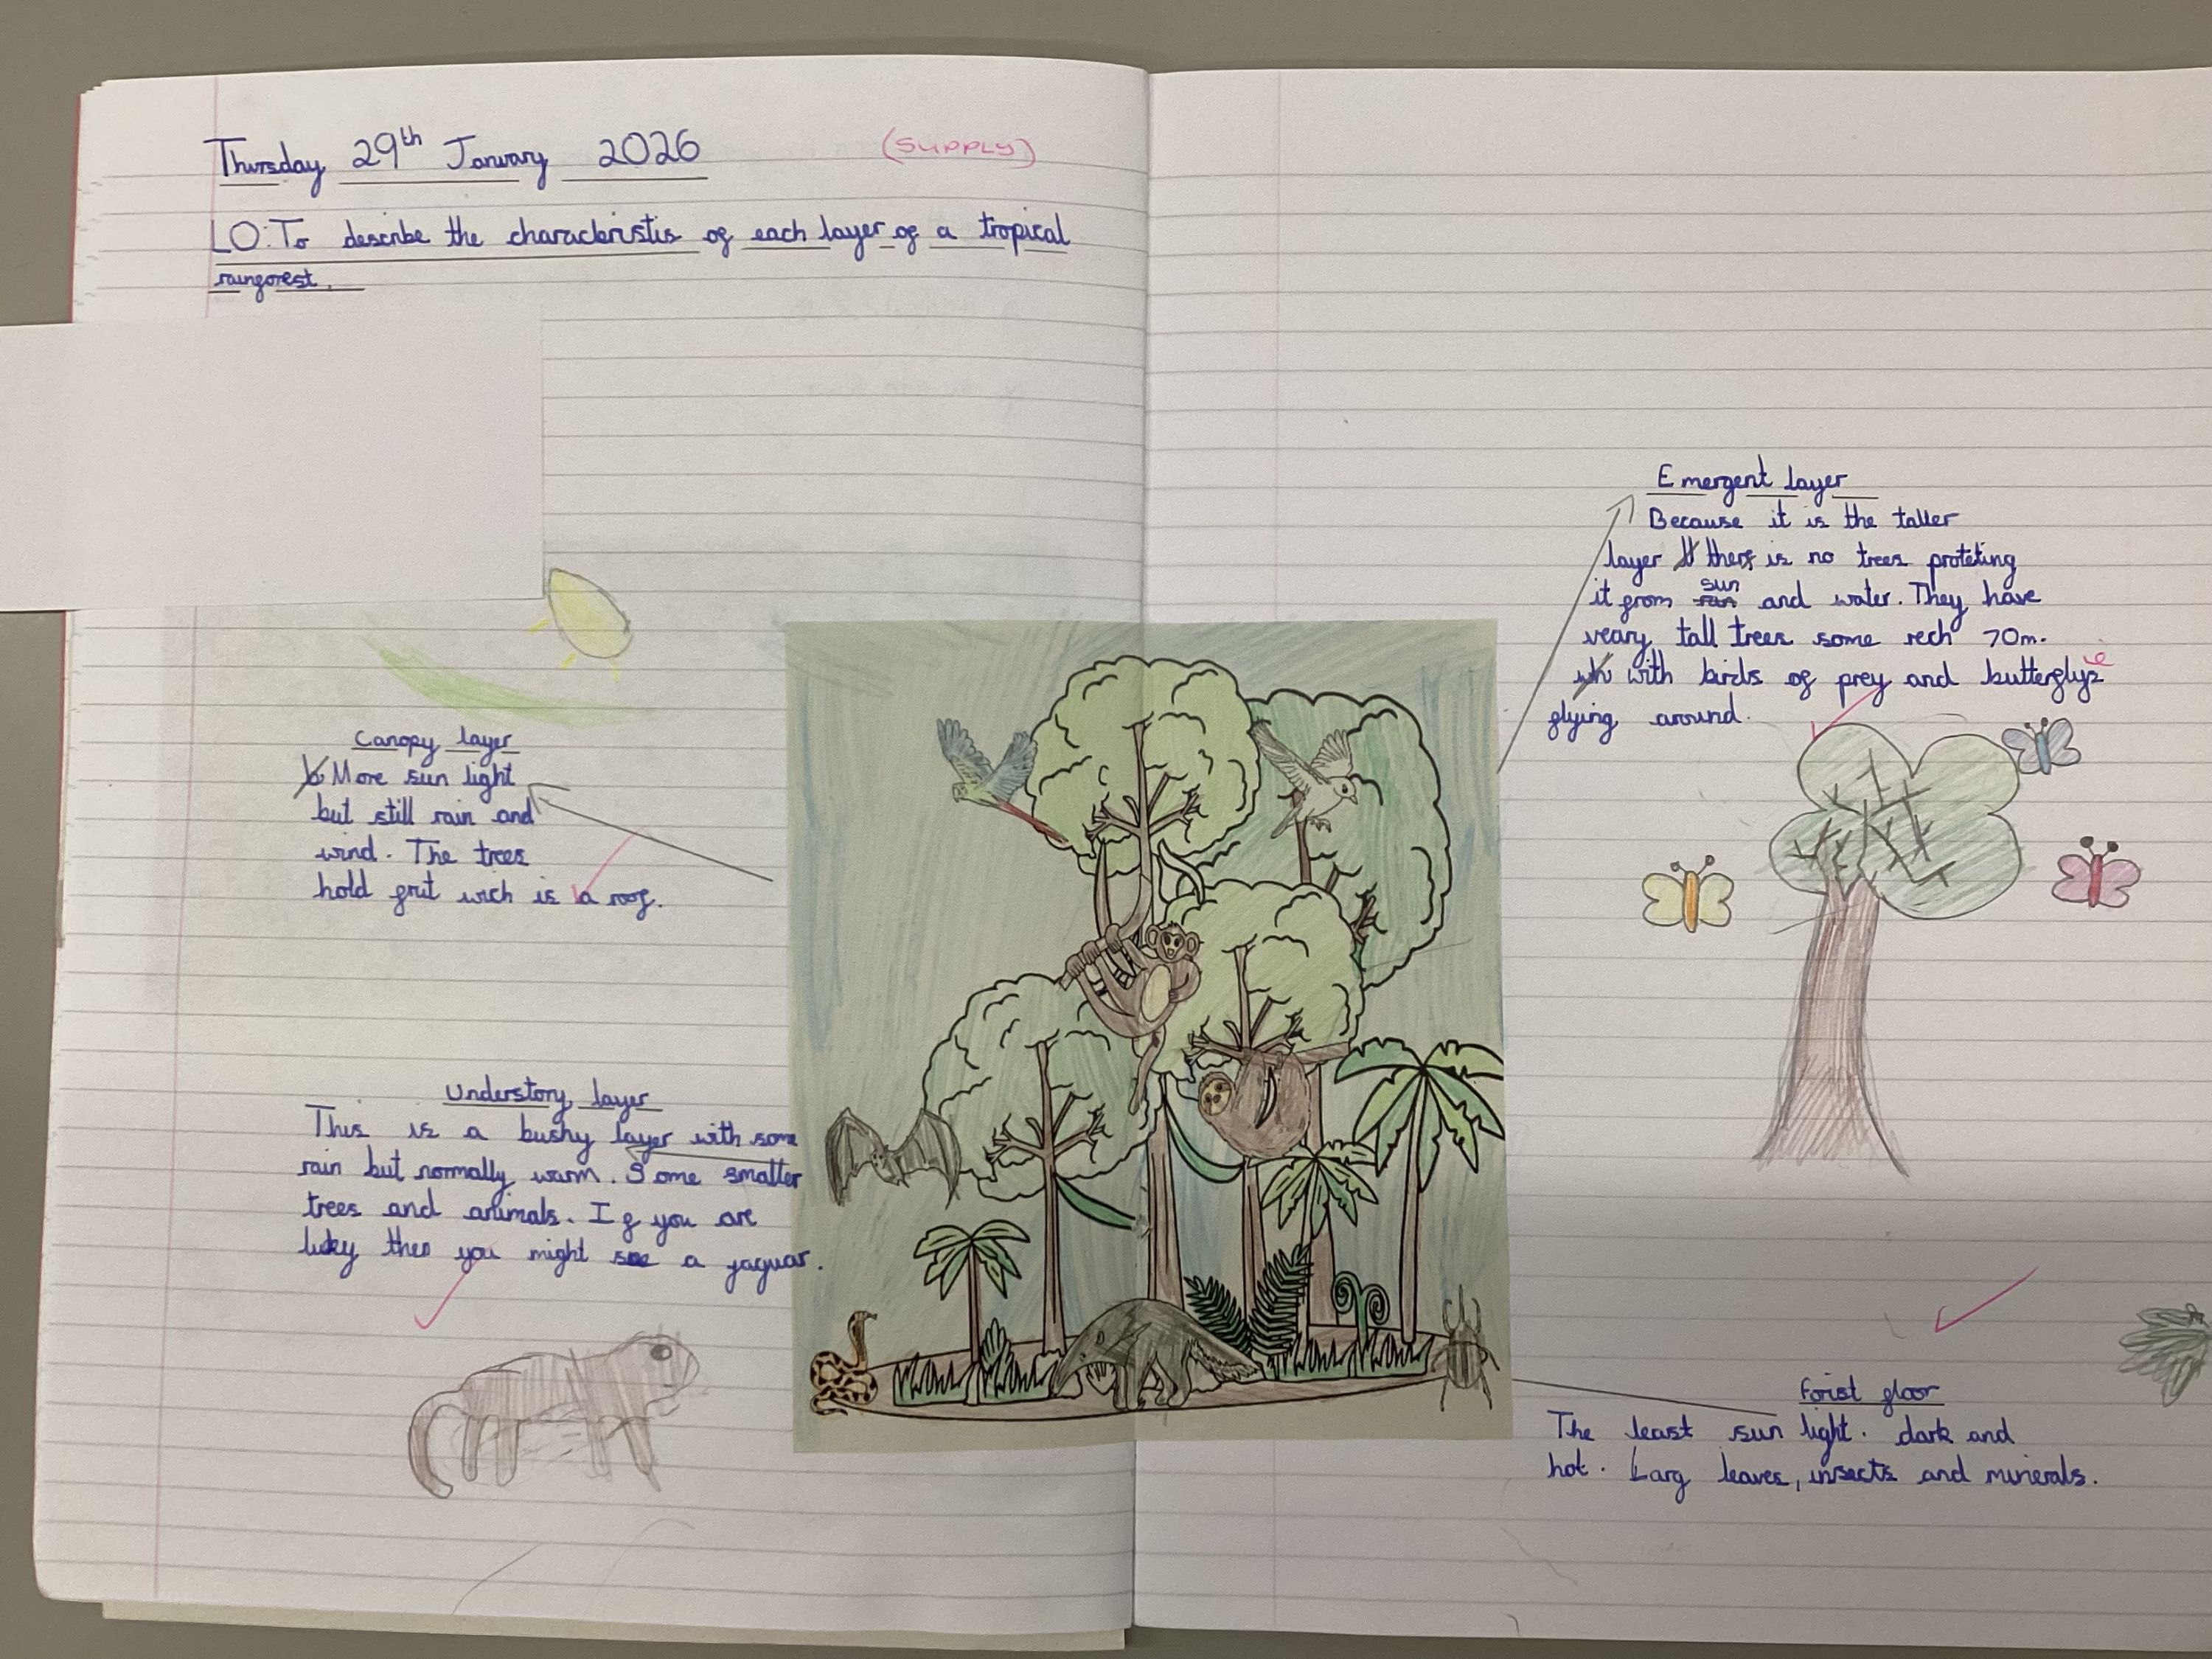 Thursday 29th January 2026 (SUPPLY)
LO: To describe the characteristis of each layer of a tropical
rainforest.
Canopy layer
More sun light
but still rain and
wind. The trees
hold frut wich is a roof.
Understory layer
This is a bushy layer with some
rain but normally warm. Some smaller
trees and animals. If you are
lucky then you might see a jaguar.
Emergent layer
Because it is the taller
layer there is no trees proteting
it from sun and water. They have
veary tall trees some rech 70m.
with birds of prey and butterflys
e
flying around.
Forist floor
The least sun light. dark and
hot. Larg leaves, insects and minerals.